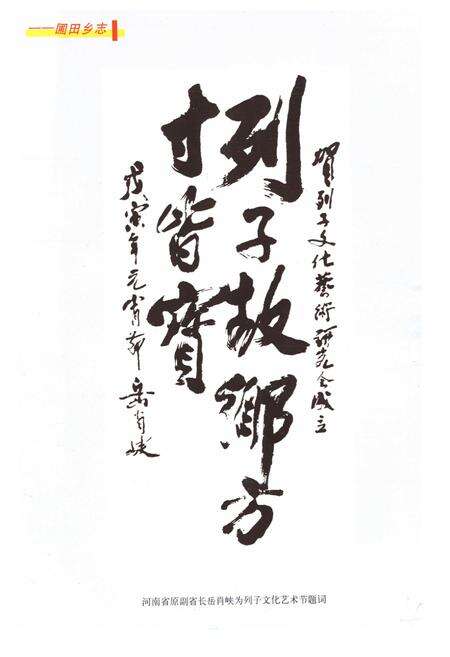 ——圃田乡志
贺列子文化藝術研究会成立
列子故鄉方
寸皆寳
戊寅年元宵節 岳肖峡
河南省原副省长岳肖峡为列子文化艺术节题词